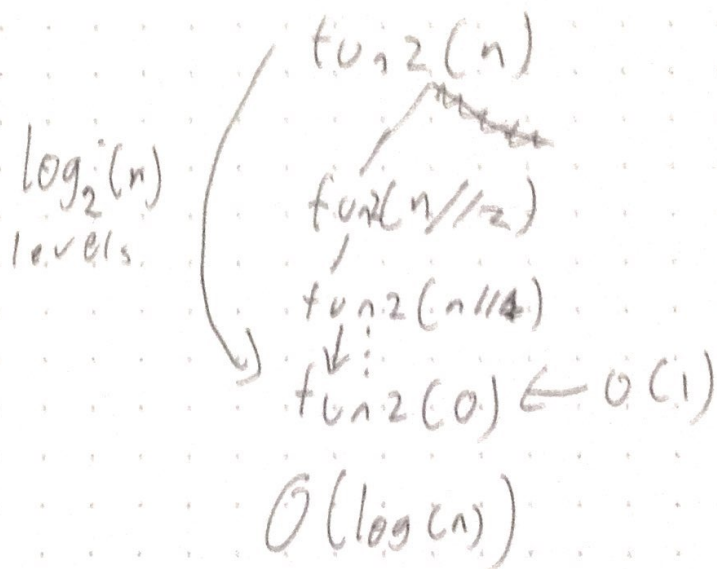 fun2(n)
log₂(n)
levels
fun2(n//2)
fun2(n//4)
fun2(0) ← O(1)
O(log(n))